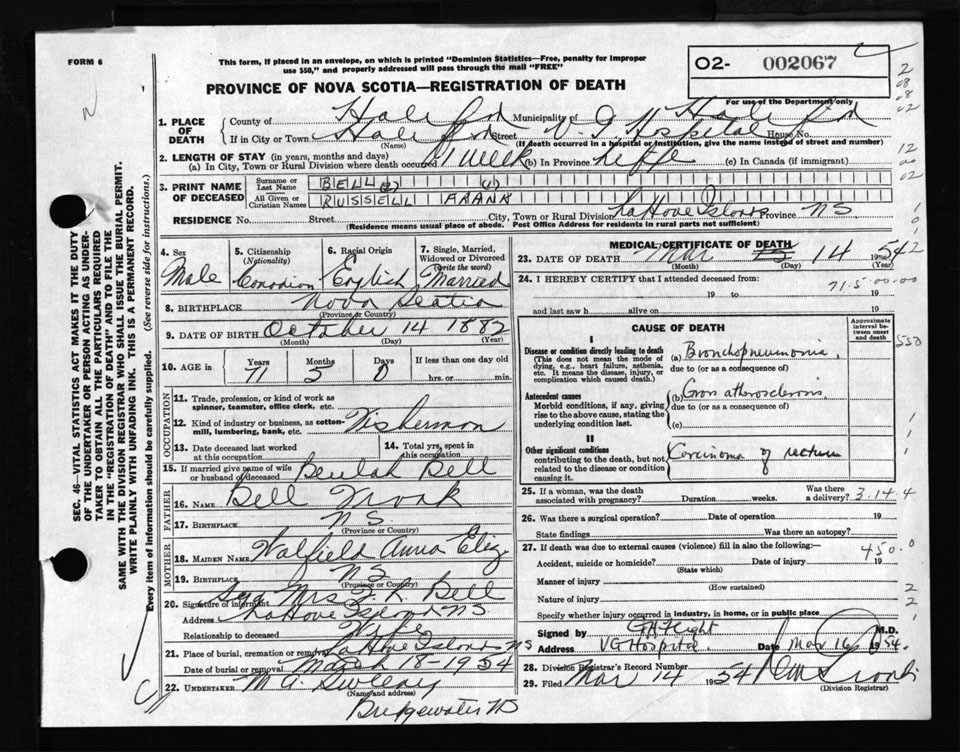 FORM 6
This form, if placed in an envelope, on which is printed "Dominion Statistics—Free, penalty for improper
use $50," and properly addressed will pass through the mail "FREE"
02- 002067
PROVINCE OF NOVA SCOTIA—REGISTRATION OF DEATH
For use of the Department only
1. PLACE OF DEATH
County of Halifax Municipality of Halifax
If in City or Town Halifax Street V. G Hospital House No.
(Name) (If death occurred in a hospital or institution, give the name instead of street and number)
2. LENGTH OF STAY (in years, months and days)
(a) In City, Town or Rural Division where death occurred 1 week (b) In Province Life (c) In Canada (if immigrant)
3. PRINT NAME OF DECEASED
Surname or Last Name BELL (2) (1)
All Given or Christian Names RUSSELL FRANK
RESIDENCE No. Street City, Town or Rural Division LaHave Islands Province NS
(Residence means usual place of abode. Post Office Address for residents in rural parts not sufficient)
4. Sex Male
5. Citizenship (Nationality) Canadian
6. Racial Origin English
7. Single, Married, Widowed or Divorced (Write the word) Married
8. BIRTHPLACE Nova Scotia
(Province or Country)
9. DATE OF BIRTH October 14 1882
(Month) (Day) (Year)
10. AGE in Years Months Days If less than one day old
71 5 0 hrs. or min.
OCCUPATION
11. Trade, profession, or kind of work as
spinner, teamster, office clerk, etc.
12. Kind of industry or business, as cotton-
mill, lumbering, bank, etc. Fisherman
13. Date deceased last worked
at this occupation
14. Total yrs. spent in
this occupation
15. If married give name of wife
or husband of deceased Beulah Bell
FATHER
16. NAME Bell
17. BIRTHPLACE NS
(Province or Country)
MOTHER
18. MAIDEN NAME Anna Eliz
19. BIRTHPLACE NS
(Province or Country)
20. Signature of informant Sgd Mrs Bell
Address LaHave Islands NS
Relationship to deceased Wife
21. Place of burial, cremation or removal LaHave Islands NS
Date of burial or removal March 18-1954
22. UNDERTAKER
(Name and address)
Bridgewater NS
MEDICAL CERTIFICATE OF DEATH
23. DATE OF DEATH Mar 14 1954
(Month) (Day) (Year)
24. I HEREBY CERTIFY that I attended deceased from:
19 to 19
and last saw h alive on 19
CAUSE OF DEATH
Approximate interval between onset and death
I
Disease or condition directly leading to death
(This does not mean the mode of
dying, e.g., heart failure, asthenia,
etc. It means the disease, injury, or
complication which caused death.)
(a) Bronchopneumonia,
due to (or as a consequence of)
Antecedent causes
Morbid conditions, if any, giving
rise to the above cause, stating the
underlying condition last.
(b) atherosclerosis.
due to (or as a consequence of)
(c)
II
Other significant conditions
contributing to the death, but not
related to the disease or condition
causing it.
Carcinoma of rectum
25. If a woman, was the death
associated with pregnancy? Duration weeks. Was there
a delivery?
26. Was there a surgical operation? Date of operation 19
State findings Was there an autopsy?
27. If death was due to external causes (violence) fill in also the following:—
Accident, suicide or homicide? Date of injury 19
(State which)
Manner of injury
(How sustained)
Nature of injury
Specify whether injury occurred in industry, in home, or in public place
Signed by M.D.
Address VG Hospital. Date Mar 16 1954.
28. Division Registrar's Record Number
29. Filed Mar 14 1954
(Division Registrar)
SEC. 46—VITAL STATISTICS ACT MAKES IT THE DUTY
OF THE UNDERTAKER OR PERSON ACTING AS UNDER-
TAKER TO OBTAIN ALL THE PARTICULARS REQUIRED
IN THE "REGISTRATION OF DEATH" AND TO FILE THE
SAME WITH THE DIVISION REGISTRAR WHO SHALL ISSUE THE BURIAL PERMIT.
WRITE PLAINLY WITH UNFADING INK. THIS IS A PERMANENT RECORD.
Every item of information should be carefully supplied. (See reverse side for instructions.)